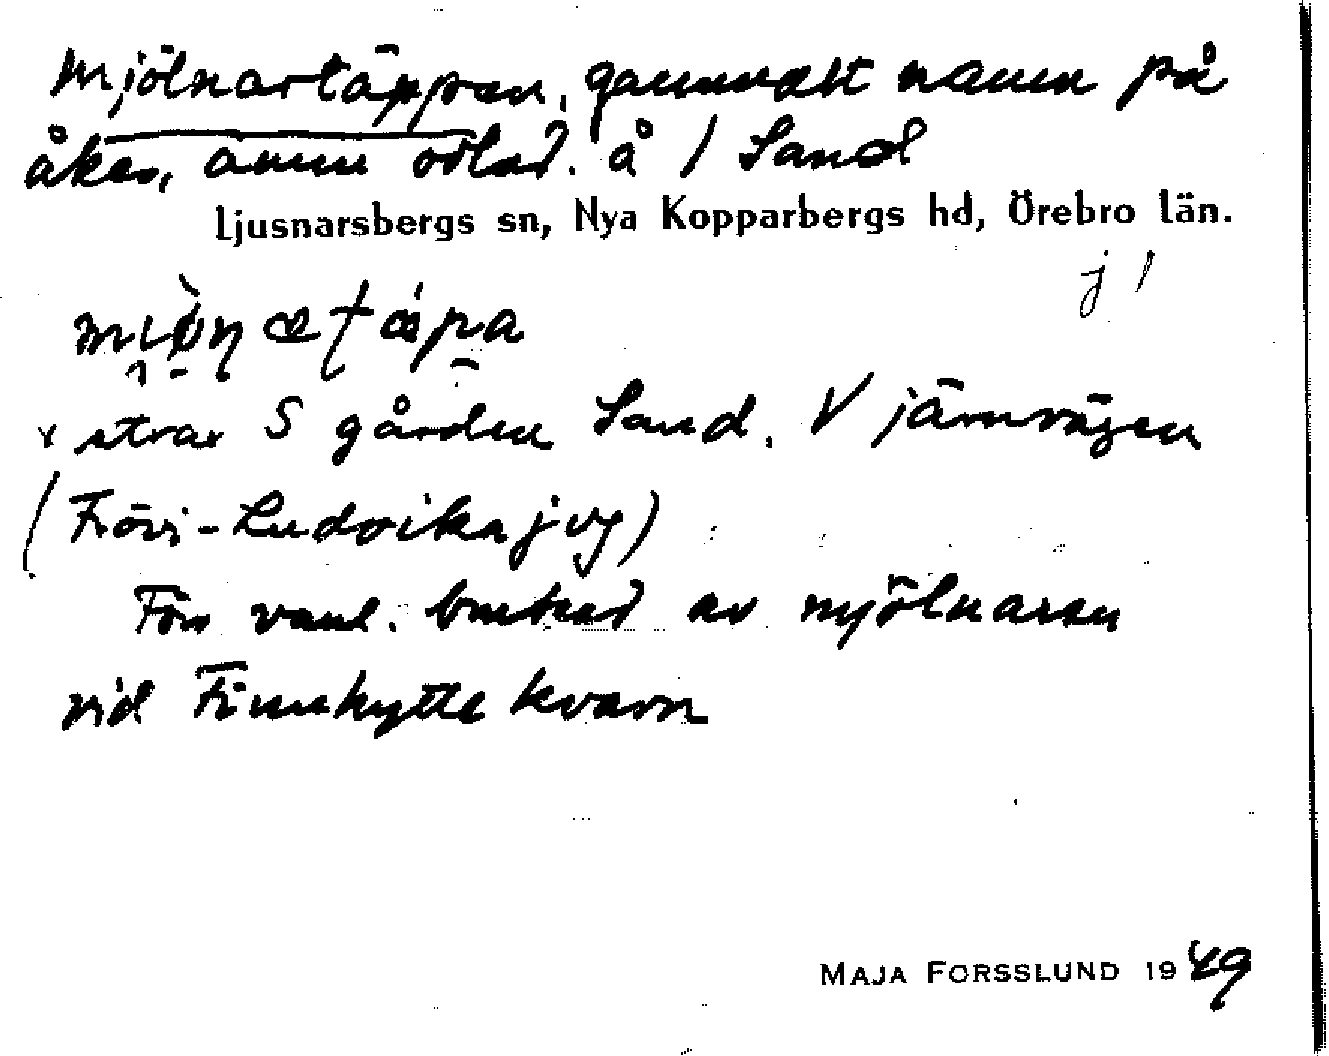 Mjölnartäppan, gammalt namn på
åker, ännu odlad. å 1 Sand
Ljusnarsbergs sn, Nya Kopparbergs hd, Örebro län.
j 1
strax S gården Sand, V järnvägen
(Frövi-Ludvika jvg)
Förr vanl. brukad av mjölnaren
vid Finnhytte kvarn
MAJA FORSSLUND 1949